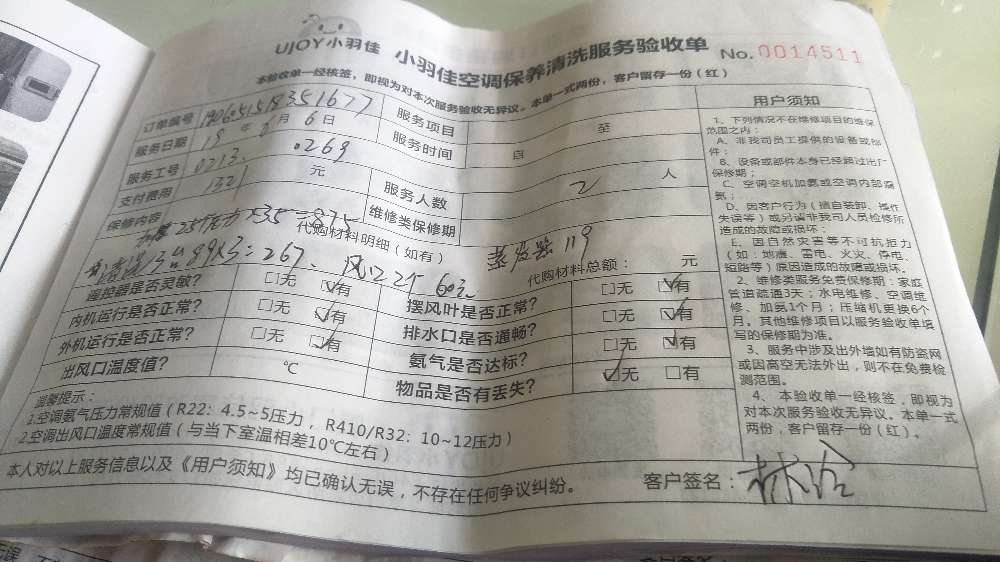 UJOY小羽佳 小羽佳空调保养清洗服务验收单 No.0014511
本验收单一经核签，即视为对本次服务验收无异议。本单一式两份，客户留存一份（红）
订单编号 服务项目
服务日期 19年6月6日 服务时间 自 至
服务工号 0213. 0269 服务人数 2 人
支付费用 1321 元 维修类保修期
保修内容
代购材料明细（如有）
清洗3台89X3=267、风口2个60元 蒸发器119
代购材料总额： 元
遥控器是否灵敏？ □无 ☑有 摆风叶是否正常？ □无 ☑有
内机运行是否正常？ □无 ☑有 排水口是否通畅？ □无 ☑有
外机运行是否正常？ □无 ☑有 氨气是否达标？ □无 ☑有
出风口温度值？ ℃ 物品是否有丢失？ ☑无 □有
温馨提示：
1.空调氨气压力常规值（R22：4.5~5压力，R410/R32：10~12压力）
2.空调出风口温度常规值（与当下室温相差10℃左右）
本人对以上服务信息以及《用户须知》均已确认无误，不存在任何争议纠纷。 客户签名：
用户须知
1、下列情况不在维修项目的维保
范围之内：
A、非我司员工提供的设备或部
件；
B、设备或部件本身已经超过出厂
保修期；
C、空调空机加氨或空调内部漏
氨；
D、因客户行为（擅自装卸、操作
失误等）或另请非我司人员检修所
造成的故障或损坏；
E、因自然灾害等不可抗拒力
（如：地震、雷电、火灾、停电、
短路等）原因造成的故障或损坏。
2、维修类服务免费保修期：家庭
管道疏通3天；水电维修、空调维
修、加氨1个月；压缩机更换6个
月。其他维修项目以服务验收单填
写的保修期为准。
3、服务中涉及出外墙如有防盗网
或因高空无法外出，则不在免费检
测范围。
4、本验收单一经核签，即视为
对本次服务验收无异议。本单一式
两份，客户留存一份（红）。